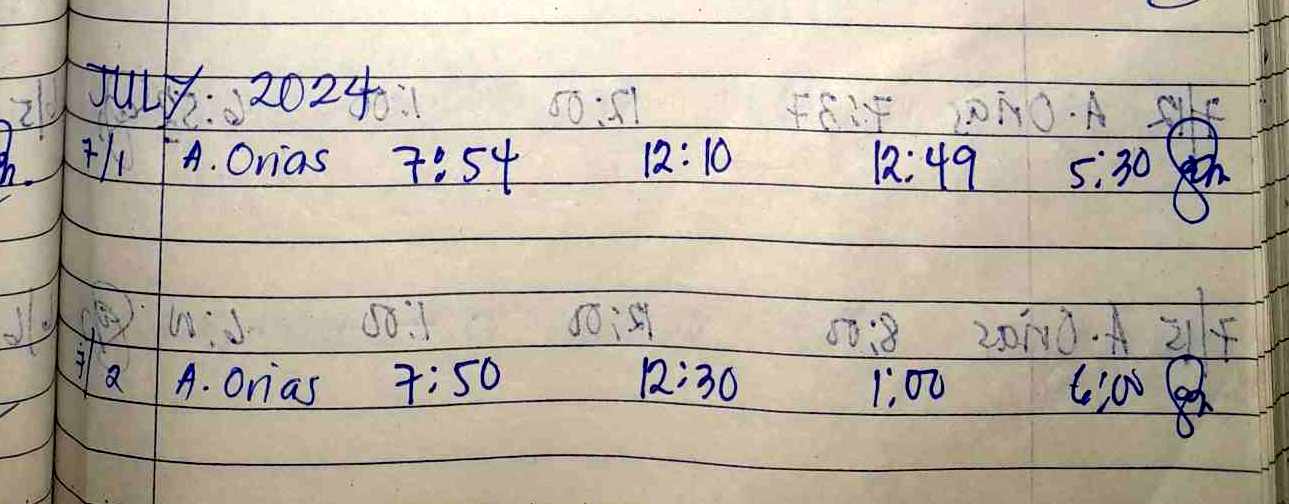 JULY 2024
7/1 A. Orias 7:54 12:10 12:49 5:30
7/2 A. Orias 7:50 12:30 1:00 6:00